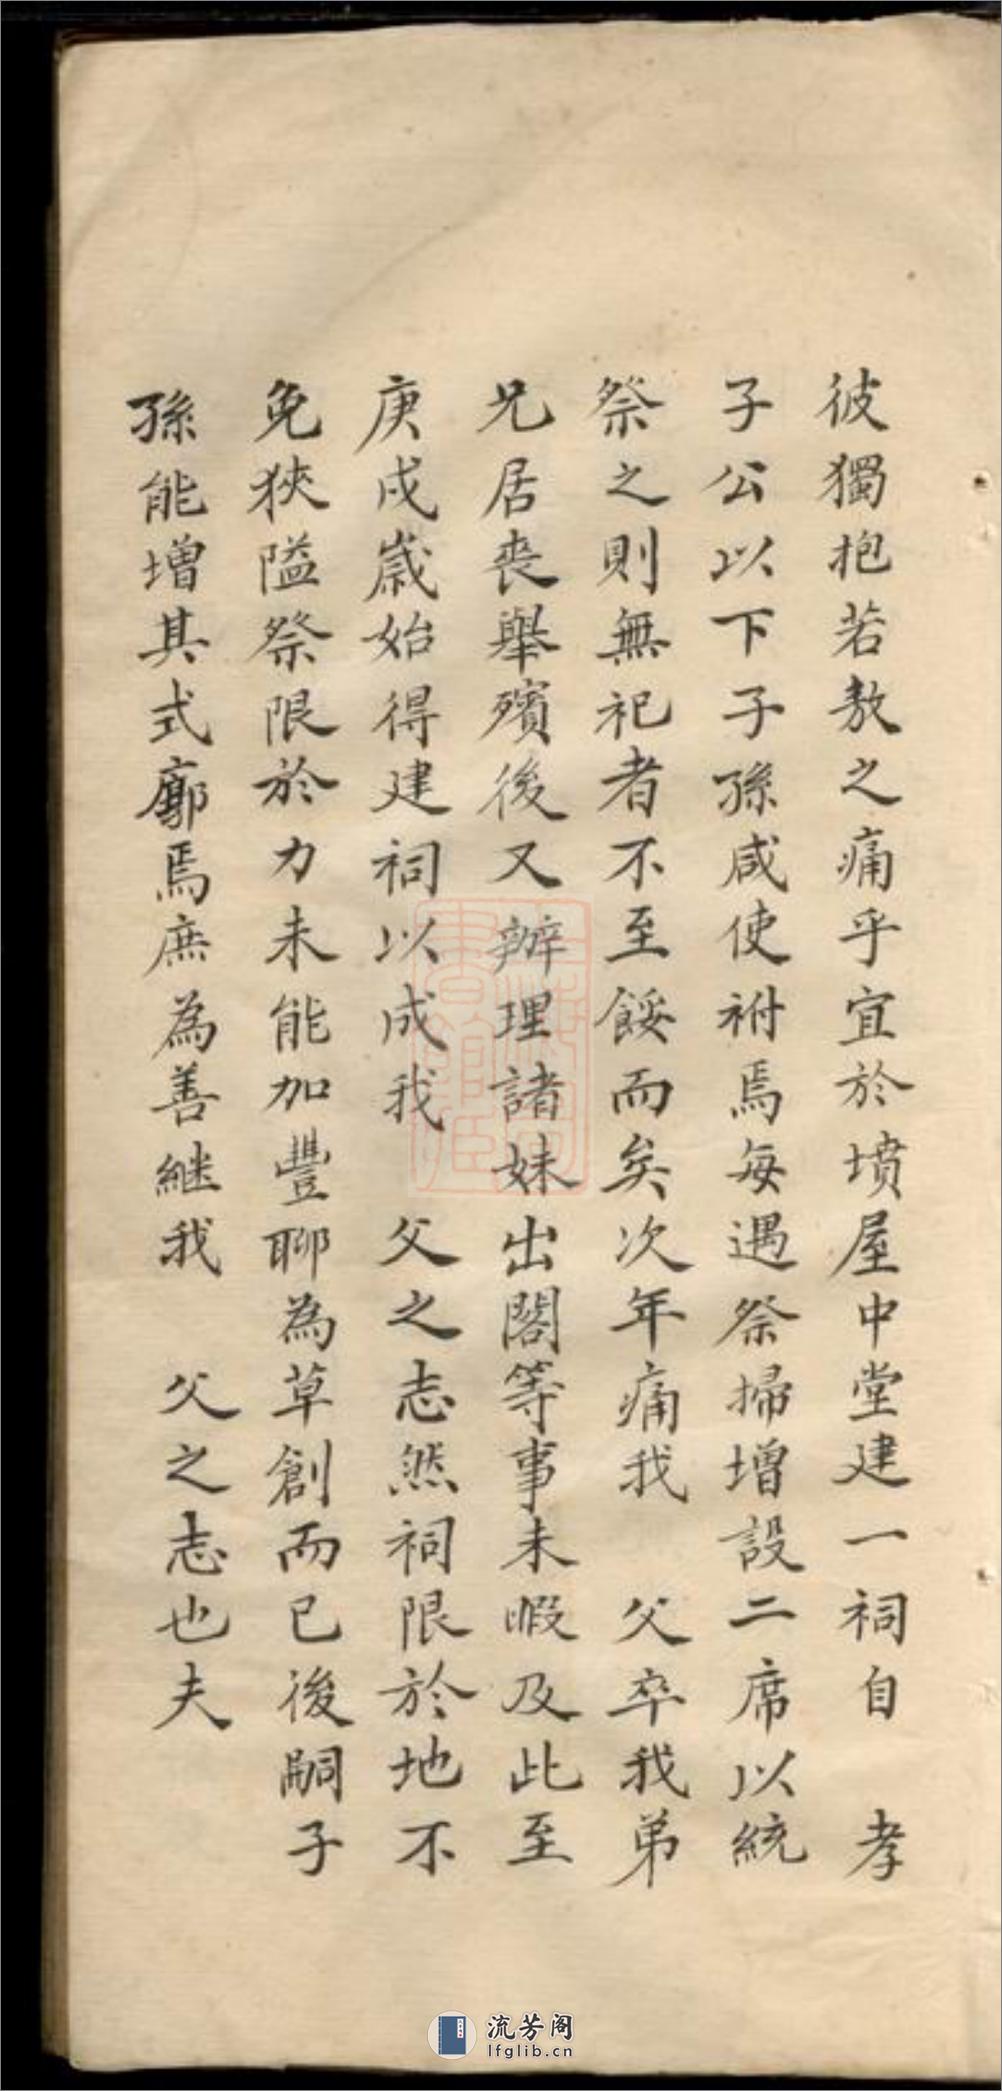 彼獨抱若敖之痛乎宜於墳屋中堂建一祠自　孝
子公以下子孫咸使祔焉每遇祭掃增設二席以統
祭之則無祀者不至餒而矣次年痛我　父卒我弟
兄居喪舉殯後又辦理諸妹出閣等事未暇及此至
庚戌嵗始得建祠以成我　父之志然祠限於地不
免狹隘祭限於力未能加豐聊為草創而已後嗣子
孫能增其式廓焉庶為善継我　父之志也夫
流芳阁
lfglib.cn